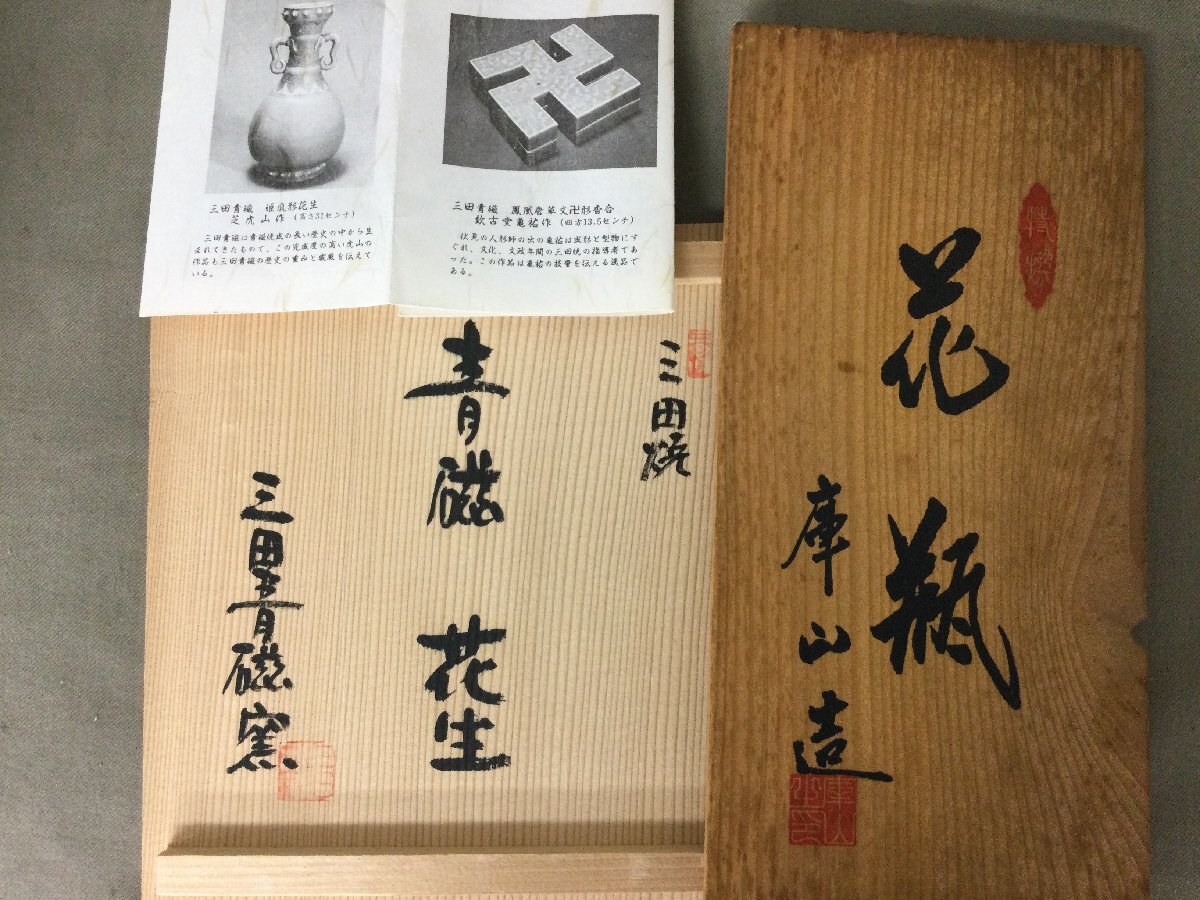 三田青磁 姫瓜形花生
芝虎山作(高さ31センチ)
三田青磁は青磁焼成の長い歴史の中から生
まれてきたもので、この完成度の高い虎山の
作品も三田青磁の歴史の重みと威厳を伝えて
いる。
三田青磁 鳳凰唐草文卍形香合
欽古堂亀祐作(四方13.5センチ)
伏見の人形師の出の亀祐は成形と型物にす
ぐれ、文化、文政年間の三田焼の指導者であ
つた。この作品は亀祐の技量を伝える逸品で
ある。
三田焼
青磁 花生
三田青磁窯
花瓶
庫山造
庫山